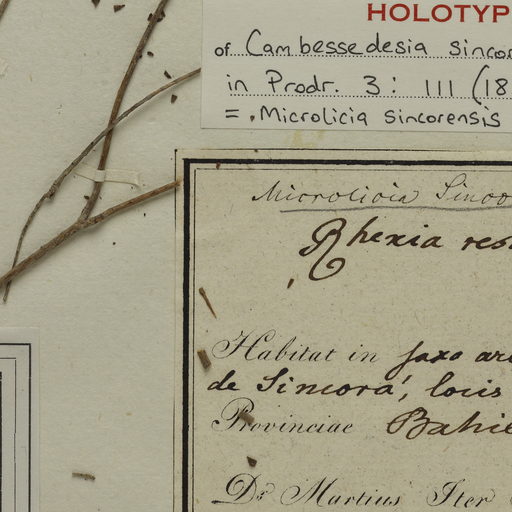 HOLOTYP
of Cambessedesia sincor
in Prodr. 3: 111 (18
= . Microlicia sincorensis
Microlicia Sinco
Rhexia res
Habitat in saxo are
de Sincorá, locis
Provinciae Bahie
Dr. Martius Iter